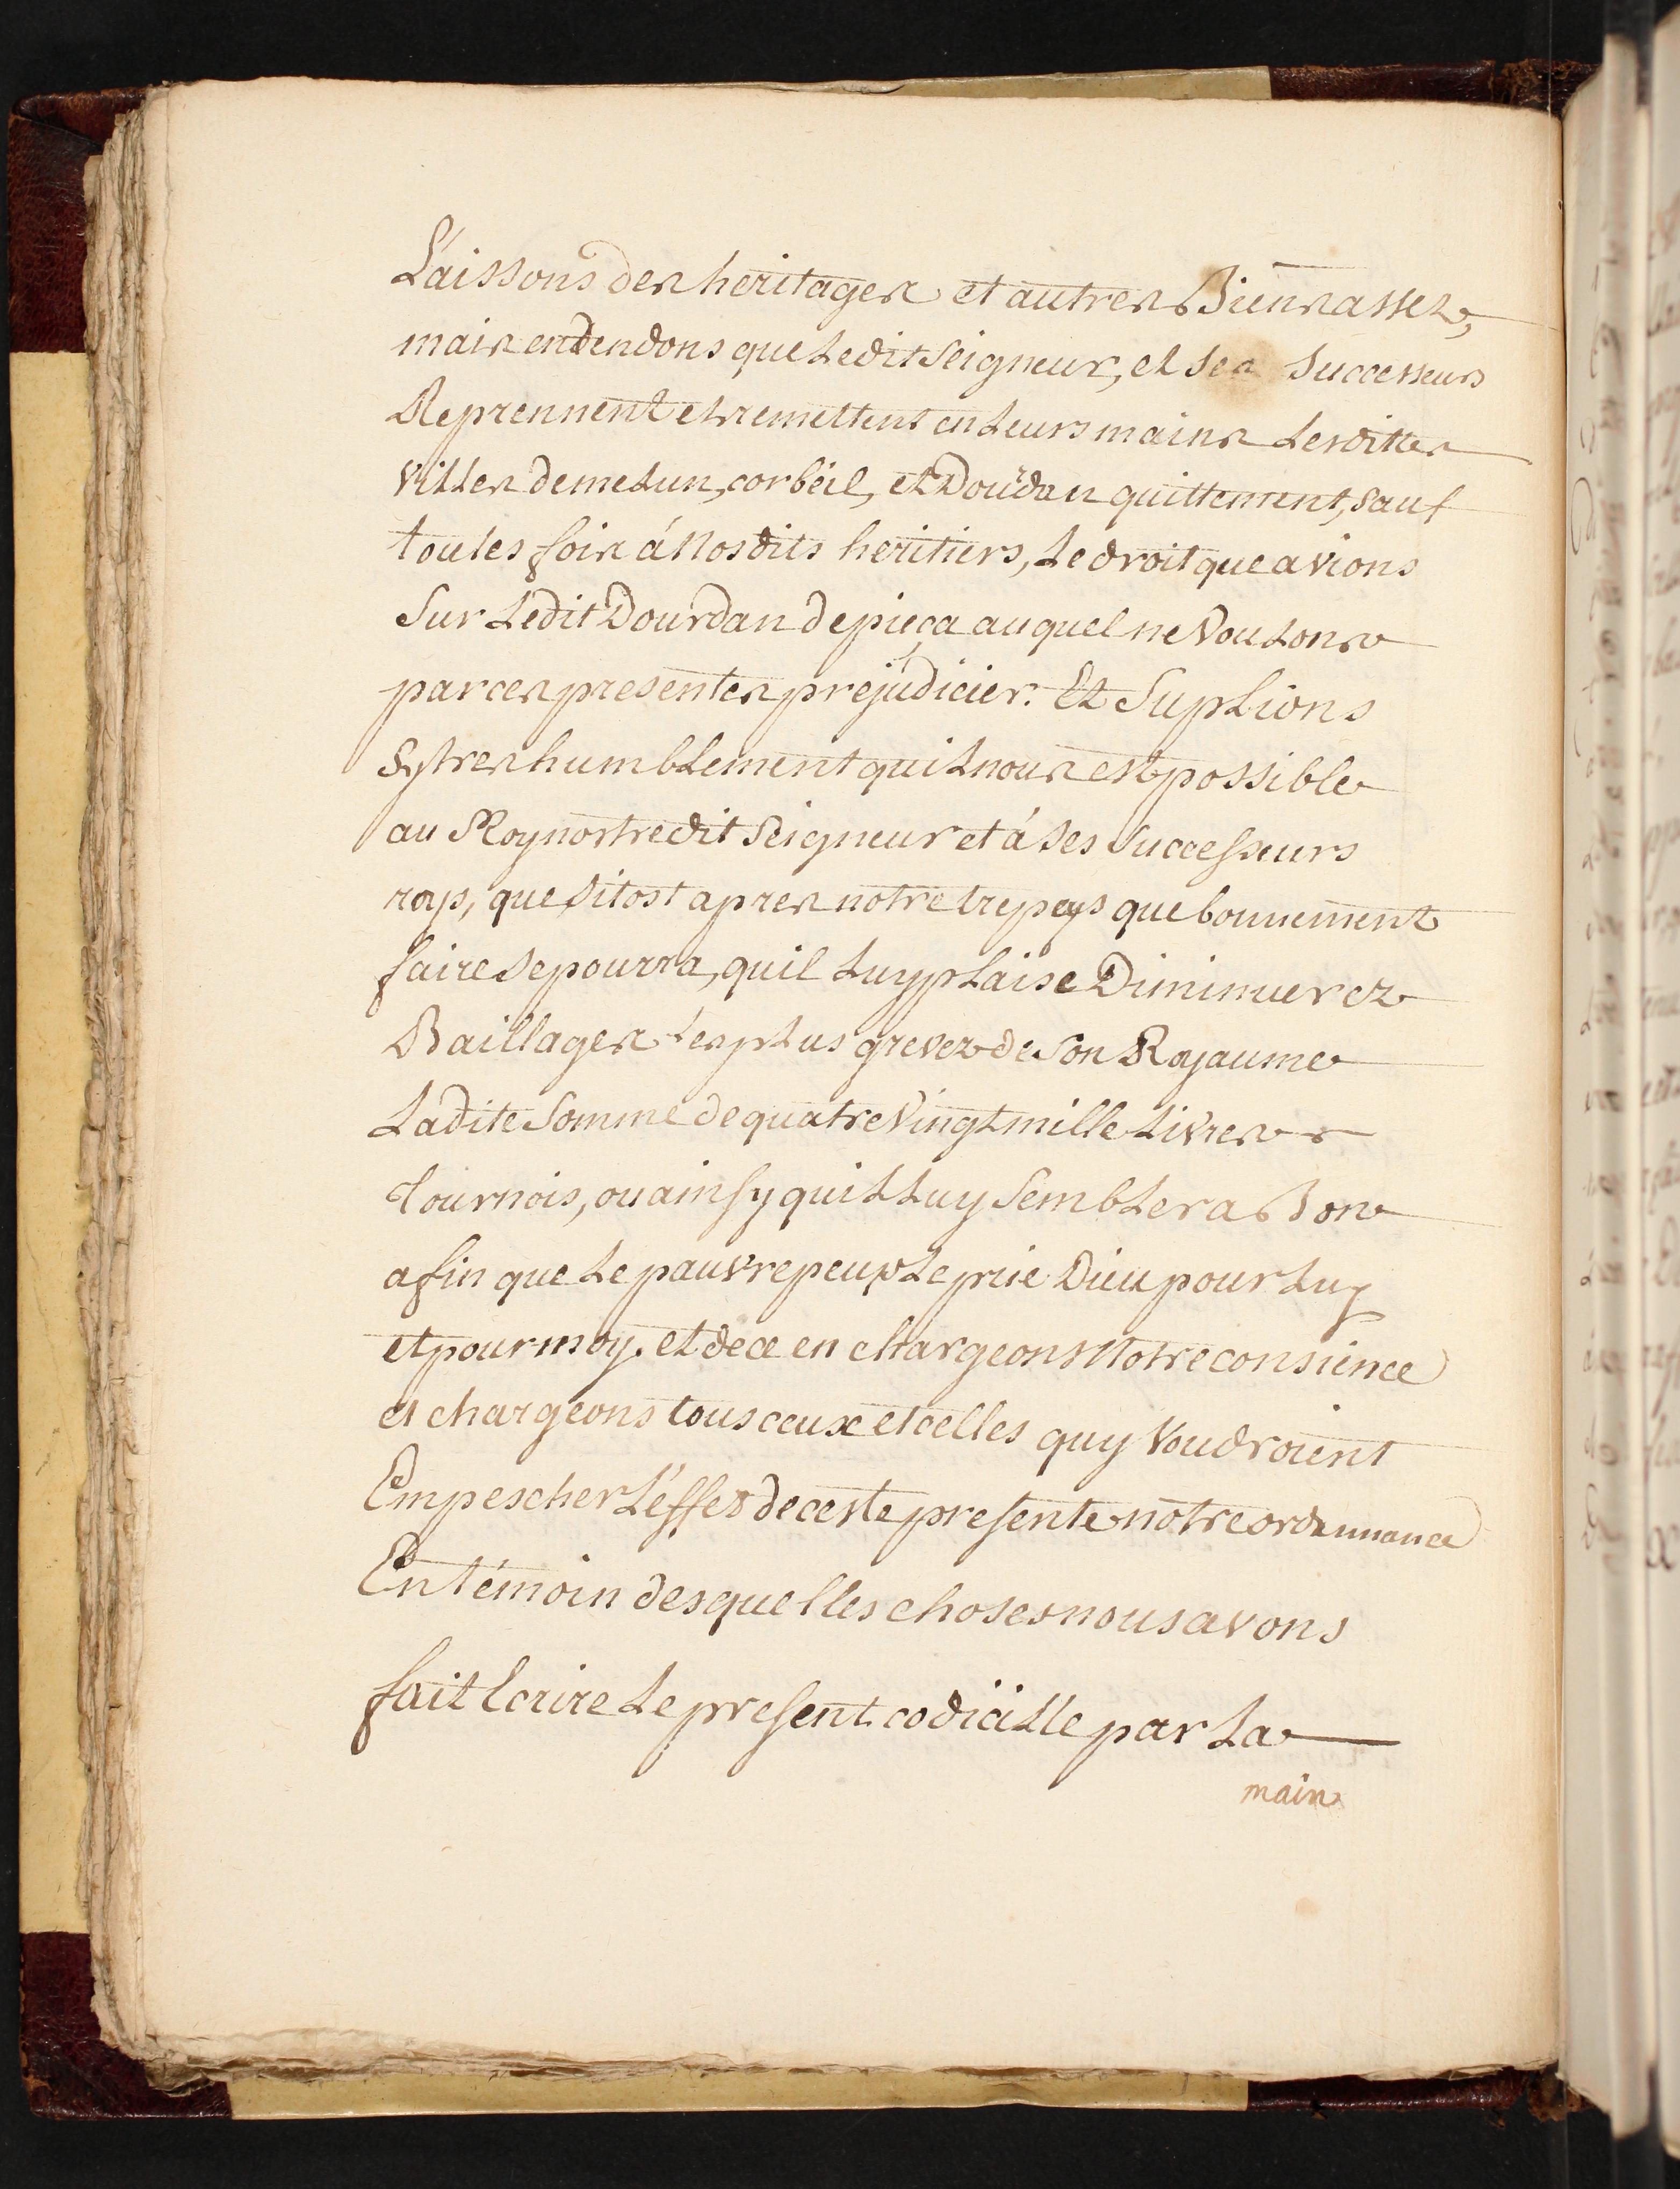 Laissons des heritages et autres Biens assez,
mais endendons que Ledit Seigneur, et ses Successeurs
Reprennent et remettent en Leurs mains Lesdittes
Villes de melun, corbeil, et Doudan quittement, sauf
toutes fois á Nosdits heritiers, Le droit que avions
Sur Ledit Dourdan de pieça auquel ne Voulons
par ces presentes prejudicier. Et Suplions
Sy tres humblement quil nous est possible
au Roy nostredit Seigneur et á Ses Successeurs
roys, que sitost apres notre trepays que bonnement
faire se pourra, quil Luy plaise Diminuer ez
Baillages les plus grevez de Son Royaume
Ladite Somme de quatre Vingt mille Livres
Tournois, ou ainsy quil Luy Semblera Bon
afin que Le pauvre peuple prie Dieu pour Luy
et pour moy. et de ce en chargeons Notre consience
et chargeons tous ceux et celles quy Voudroient
Empescher L'effet de ceste presente notre ordennance
En témoin desquelles choses nous avons
fait Ecrire Le present codicille par La
main